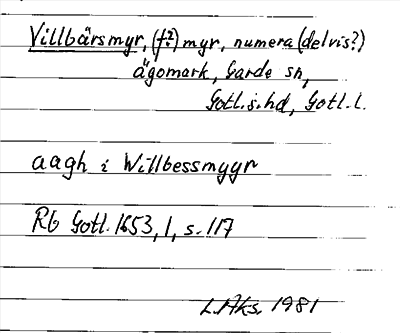 Villbärsmyr, (f.?) myr, numera (delvis?)
ägomark, Garde sn,
Gotl.s.hd, Gotl.l.
aagh i Willbessmyyr
Rb Gotl. 1653, 1, s. 117
L.Aks. 1981